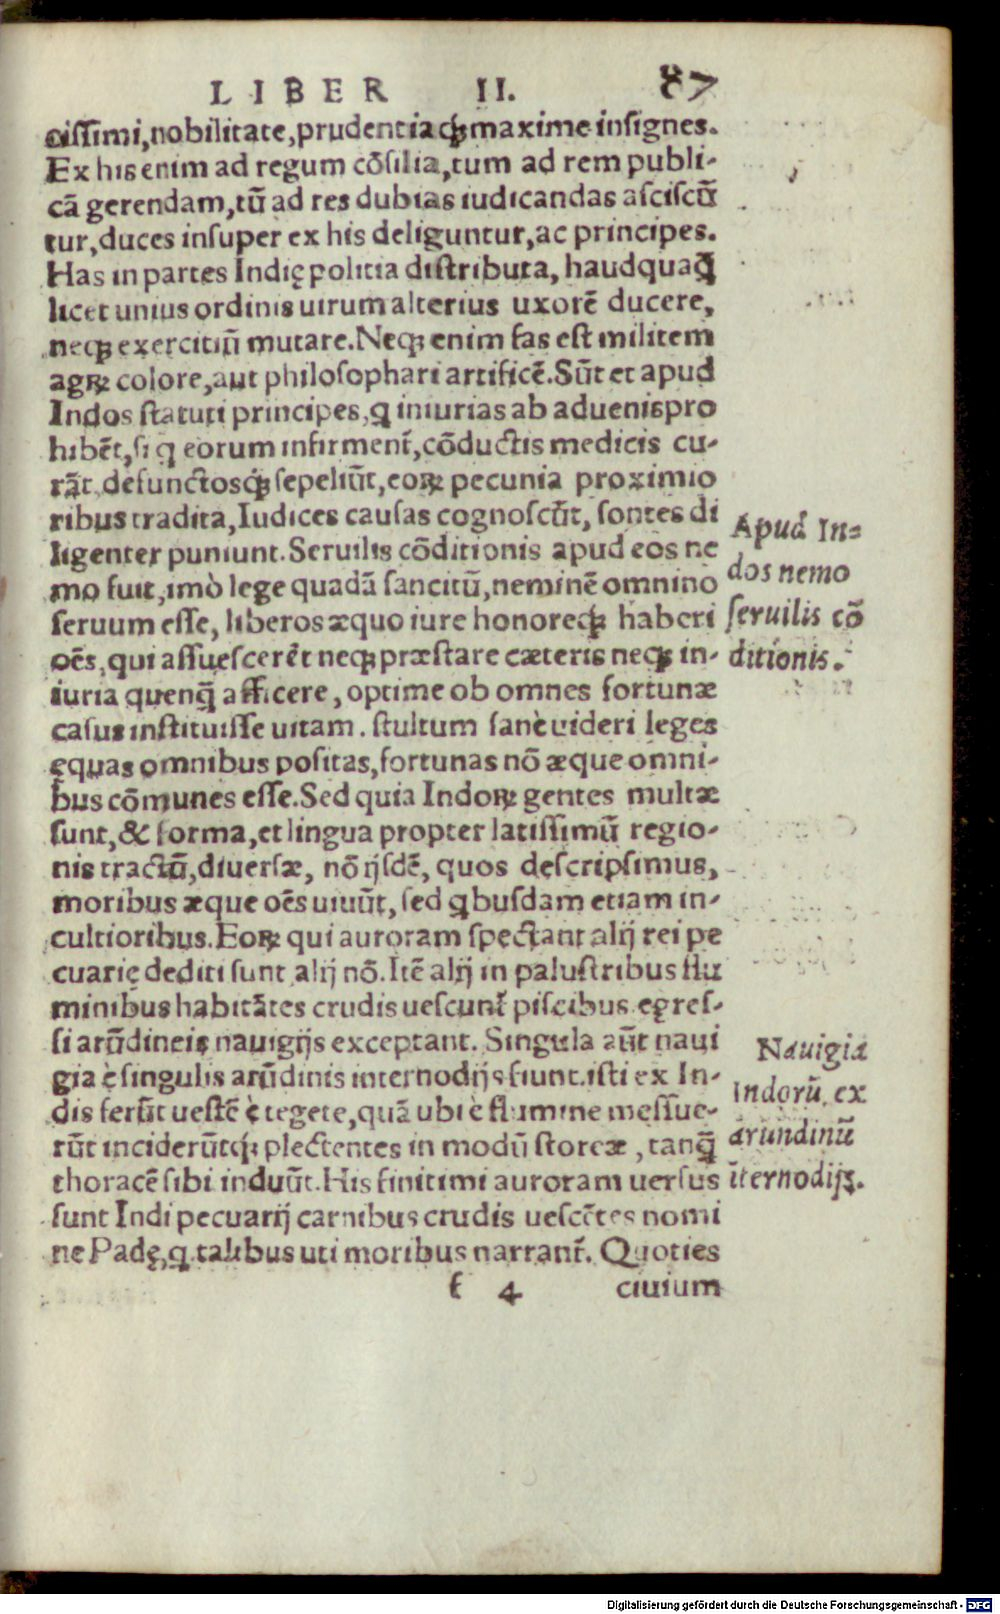 LIBER II. 87
cissimi, nobilitate, prudentiaq́ꝫ maxime insignes.
Ex his enim ad regum cõsilia, tum ad rem publi-
cã gerendam, tũ ad res dubias iudicandas asciscũ
tur, duces insuper ex his deliguntur, ac principes.
Has in partes Indię politia distributa, haudquaq̃
licet unius ordinis uirum alterius uxorẽ ducere,
neqꝫ exercitiũ mutare. Neqꝫ enim fas est militem
agrꝝ colore, aut philosophari artificẽ. Sũt et apud
Indos statuti principes, q iniurias ab aduenis pro
hibẽt, si q eorum infirment̃, cõductis medicis cu-
rãt, defunctosq́ꝫ sepeliũt, eoꝝ pecunia proximio
ribus tradita, Iudices causas cognoscũt, sontes di
ligenter puniunt. Seruilis cõditionis apud eos ne
mo fuit, imò lege quadã sancitũ, neminẽ omnino
seruum esse, liberos æquo iure honoreq́ꝫ haberi
oẽs, qui assuescerẽt neqꝫ præstare cæteris neqꝫ in-
iuria quenq̃ afficere, optime ob omnes fortunæ
casus instituisse uitam. stultum sanè uideri leges
ęquas omnibus positas, fortunas nõ æque omni-
bus cõmunes esse. Sed quia Indoꝝ gentes multæ
sunt, & forma, et lingua propter latissimũ regio-
nis tractũ, diuersæ, nõ ijsdẽ, quos descripsimus,
moribus æque oẽs uiuũt, sed qbusdam etiam in-
cultioribus. Eoꝝ qui auroram spectant alij rei pe
cuarię dediti sunt alij nõ. Itẽ alij in palustribus flu
minibus habitãtes crudis uescunt̃ piscibus egres-
si arũdineis nauigijs exceptant. Singula aũt naui
gia è singulis arũdinis internodijs fiunt. isti ex In-
dis ferũt uestẽ è tegete, quã ubi è flumine messue-
rũt inciderũtq́ꝫ plectentes in modũ storeæ, tanq̃
thoracẽ sibi induũt. His finitimi auroram uersus
sunt Indi pecuarij carnibus crudis uescẽtes nomi
ne Padę, q talibus uti moribus narrant̃. Quoties
f 4 ciuium
Apud In=
dos nemo
seruilis cõ
ditionis.
Nauigia
Indorũ ex
arundinũ
ĩternodijs.
Digitalisierung gefördert durch die Deutsche Forschungsgemeinschaft - DFG